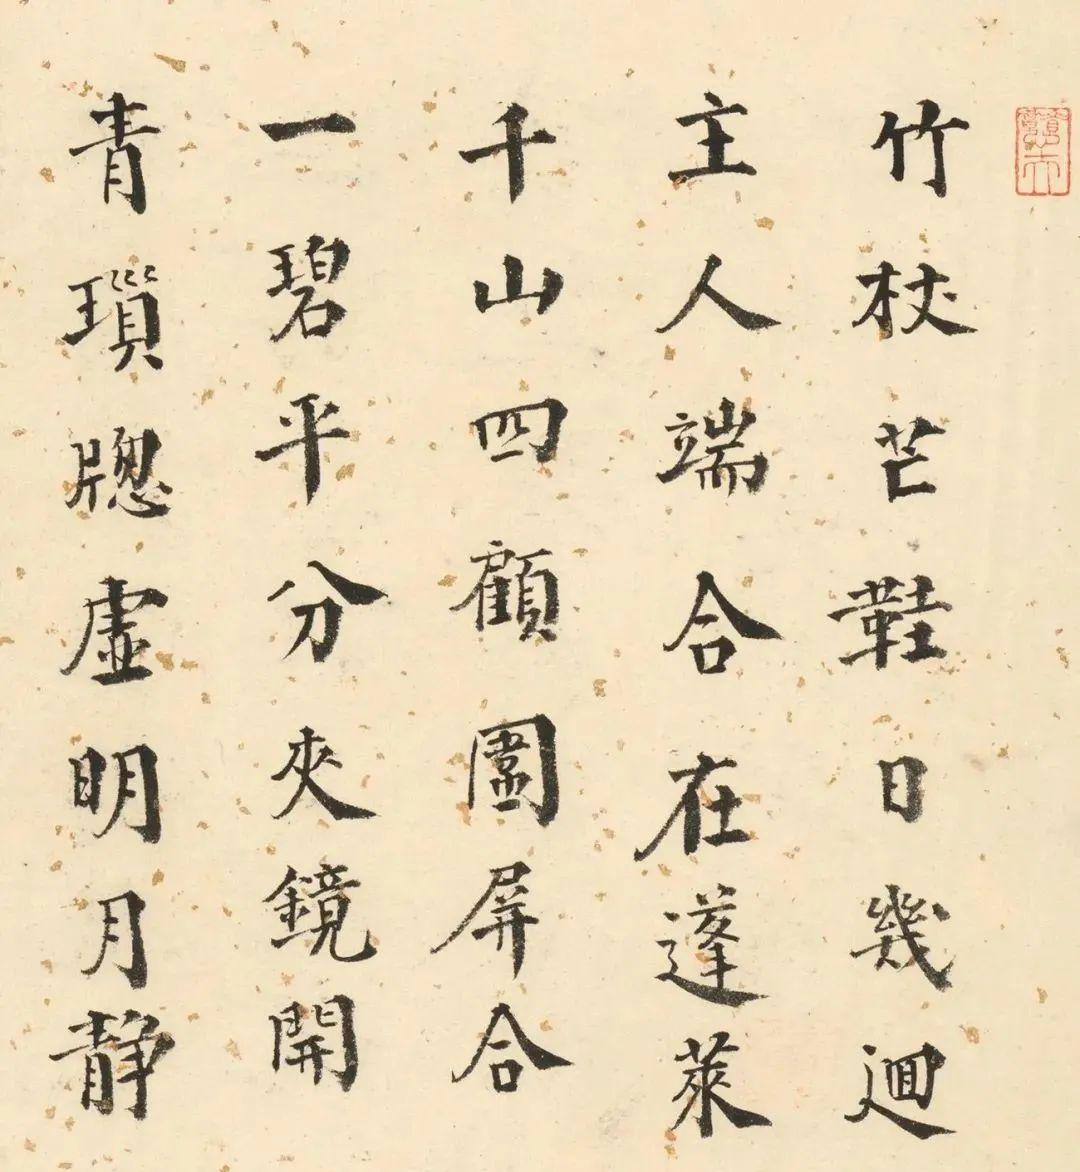 竹杖芒鞋日幾迴
主人端合在蓬萊
千山四顧圖屏合
一碧平分夾鏡開
青瑣牎虛明月静